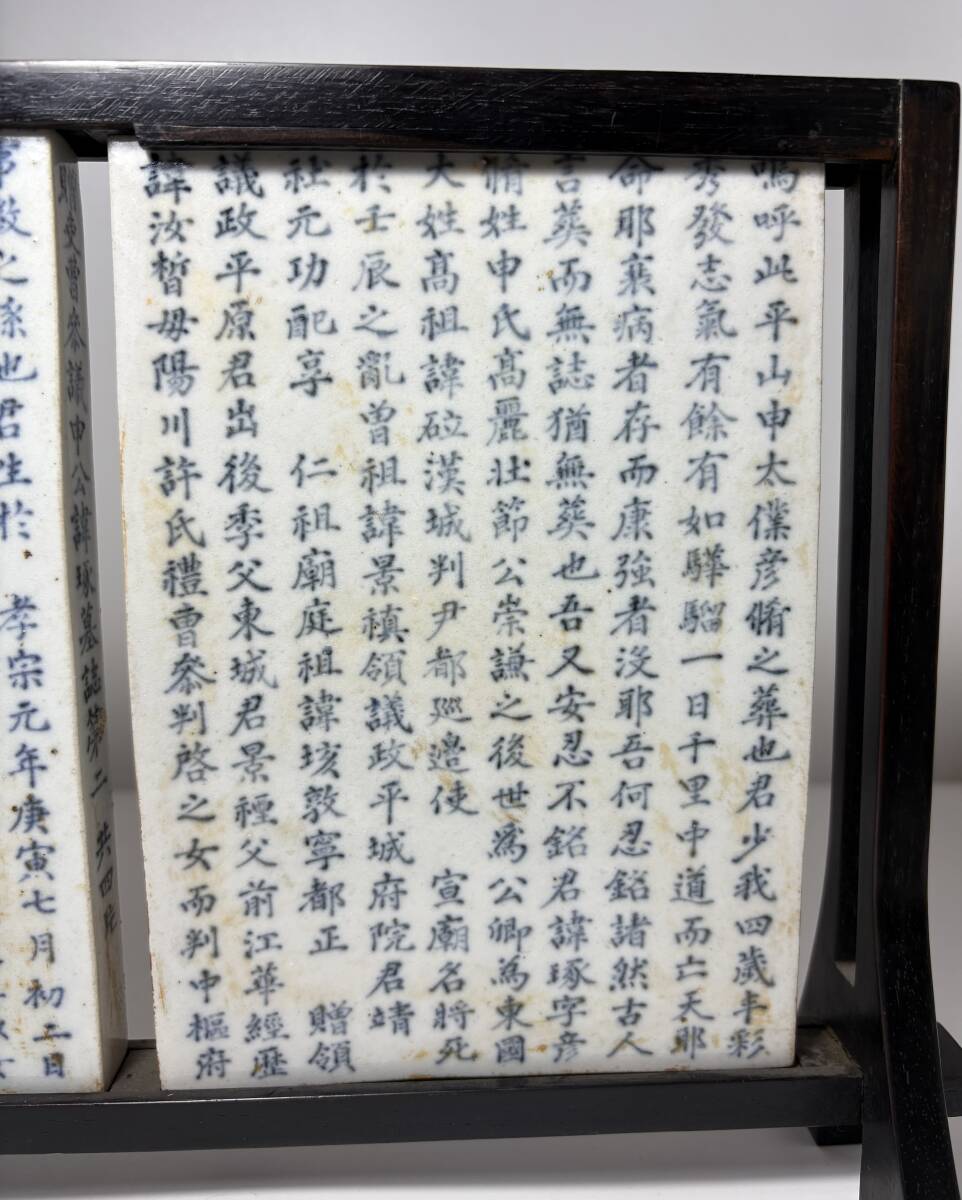 嗚呼此平山申太僕彦脩之葬也君少我四歳丰彩
秀發志氣有餘有如驊騮一日千里中道而亡天耶
命耶衰病者存而康強者沒耶吾何忍銘諸然古人
言葬而無誌猶無葬也吾又安忍不銘君諱琢字彦
脩姓申氏高麗壯節公崇謙之後世為公卿為東國
大姓高祖諱砬漢城判尹都巡邉使 宣廟名將死
於壬辰之亂曽祖諱景禛領議政平城府院君靖
社元功配享 仁祖廟庭祖諱垓敦寧都正 贈領
議政平原君出後季父東城君景禋父前江華經歷
諱汝晳母陽川許氏禮曹叅判啓之女而判中樞府
曹叅議申公諱琢墓誌第二 共四片
事敦之孫也君生於 孝宗元年庚寅七月初二日